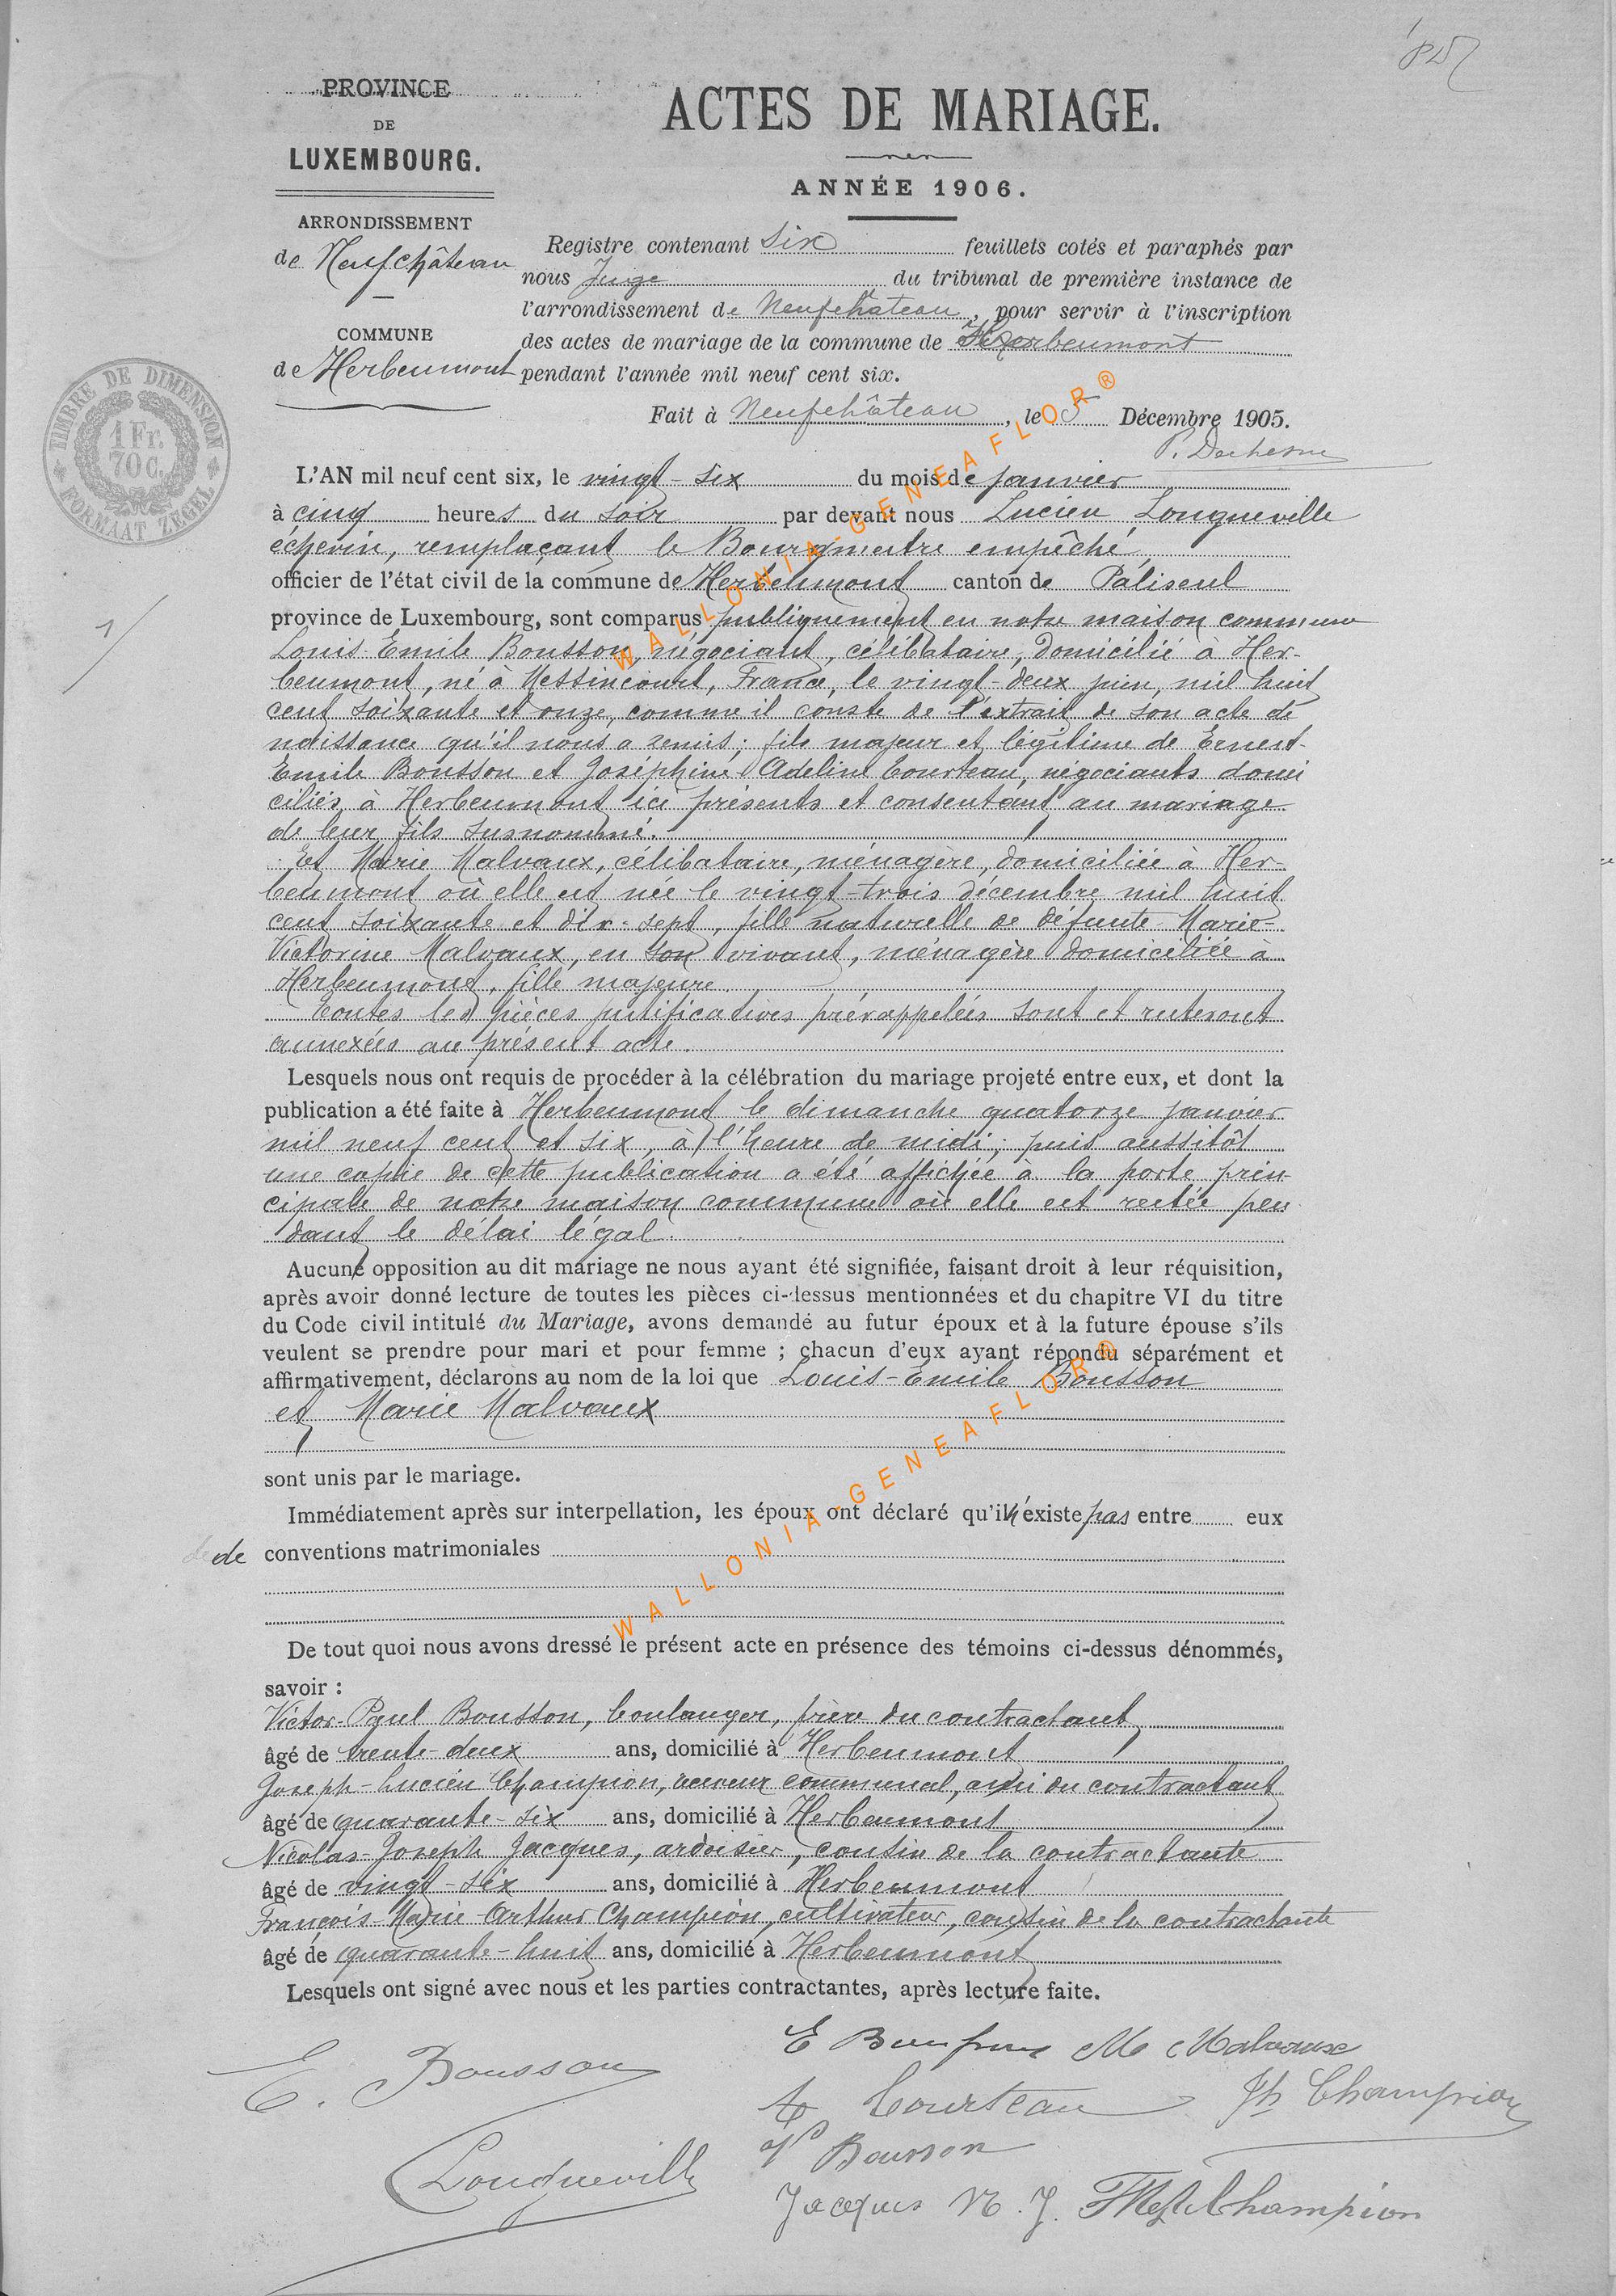 PROVINCE
DE
LUXEMBOURG.
ARRONDISSEMENT
de Neufchâteau
COMMUNE
de Herbeumont
TIMBRE DE DIMENSION
1 Fr.
70 C.
FORMAAT ZEGEL
ACTES DE MARIAGE.
ANNÉE 1906.
Registre contenant six feuillets cotés et paraphés par
nous Juge du tribunal de première instance de
l'arrondissement de Neufchâteau, pour servir à l'inscription
des actes de mariage de la commune de Herbeumont
pendant l'année mil neuf cent six.
Fait à Neufchâteau, le 5 Décembre 1905.
1/
L'AN mil neuf cent six, le vingt-six du mois de janvier
à cinq heures du soir par devant nous Lucien Longueville
échevin, remplaçant le Bourgmestre empêché,
officier de l'état civil de la commune de Herbeumont canton de Paliseul
province de Luxembourg, sont comparus publiquement en notre maison commune
Louis-Emile Bousson, négociant, célibataire, domicilié à Her-
beumont, né à Messincourt, France, le vingt-deux juin, mil huit
cent soixante et onze, comme il conste de l'extrait de son acte de
naissance qu'il nous a remis; fils majeur et légitime de Ernest-
Emile Bousson et Joséphine Adeline Courteau, négociants domi
ciliés à Herbeumont ici présents et consentant au mariage
de leur fils susnommé.
Et Marie Malvaux, célibataire, ménagère, domiciliée à Her-
beumont où elle est née le vingt-trois décembre mil huit
cent soixante et dix-sept, fille naturelle de défunte Marie-
Victorine Malvaux, en son vivant, ménagère domiciliée à
Herbeumont, fille majeure.
Toutes les pièces justificatives prérappelées sont et resteront
annexées au présent acte.
Lesquels nous ont requis de procéder à la célébration du mariage projeté entre eux, et dont la
publication a été faite à Herbeumont le dimanche quatorze janvier
mil neuf cent et six, à l'heure de midi; puis aussitôt
une copie de cette publication a été affichée à la porte prin-
cipale de notre maison commune où elle est restée pen
dant le délai légal.
Aucune opposition au dit mariage ne nous ayant été signifiée, faisant droit à leur réquisition,
après avoir donné lecture de toutes les pièces ci-dessus mentionnées et du chapitre VI du titre
du Code civil intitulé du Mariage, avons demandé au futur époux et à la future épouse s'ils
veulent se prendre pour mari et pour femme ; chacun d'eux ayant répondu séparément et
affirmativement, déclarons au nom de la loi que Louis-Emile Bousson
et Marie Malvaux
sont unis par le mariage.
Immédiatement après sur interpellation, les époux ont déclaré qu'il n'existe pas entre eux
de conventions matrimoniales
De tout quoi nous avons dressé le présent acte en présence des témoins ci-dessus dénommés,
savoir :
Victor-Paul Bousson, boulanger, frère du contractant,
âgé de trente-deux ans, domicilié à Herbeumont
Joseph-Lucien Champion, receveur communal, ami du contractant
âgé de quarante-six ans, domicilié à Herbeumont
Nicolas-Joseph Jacques, ardoisier, cousin de la contractante
âgé de vingt-six ans, domicilié à Herbeumont
François-Marie-Arthur Champion, cultivateur, cousin de la contractante
âgé de quarante-huit ans, domicilié à Herbeumont
Lesquels ont signé avec nous et les parties contractantes, après lecture faite.
M Malvaux
E. Bousson
Courteau Jh Champion
Bousson
Longueville
Jacques N. J. Champion
WALLONIA-GENEAFLOR®
WALLONIA-GENEAFLOR®